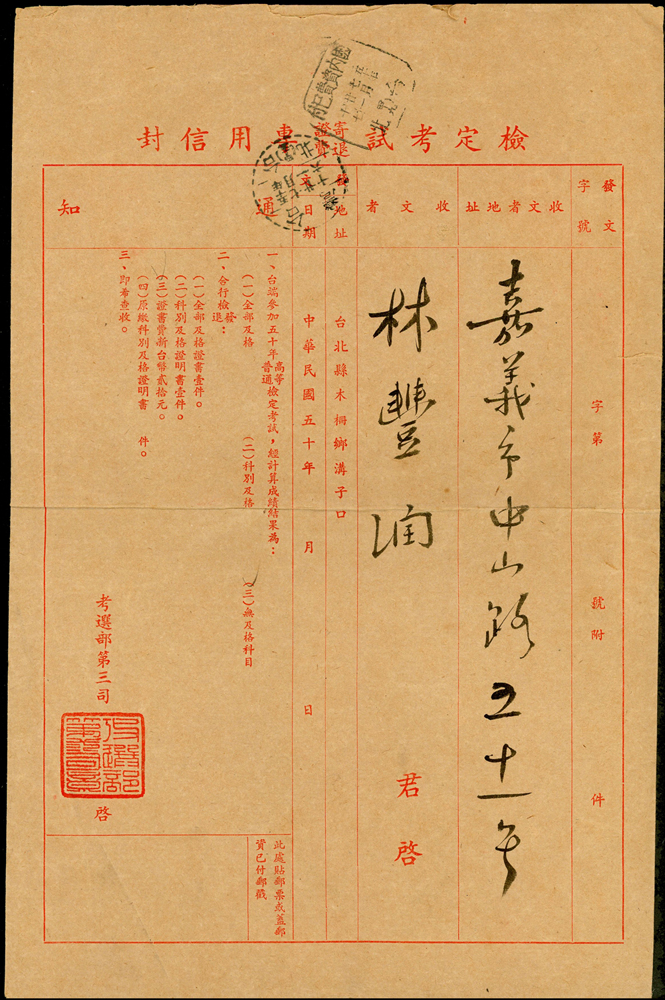 檢定考試寄退證費專用信封
國內資費已付
發文字號
字第 號附 件
收文者地址
嘉義市中山路五十一号
收文者
林豐潤 君啓
發文地址
台北縣木柵鄉溝子口
日期
中華民國五十年 月 日
通知
一、台端參加五十年高等普通檢定考試，經計算成績結果為：
(一)全部及格 (二)科別及格 (三)無及格科目
二、合行檢發退：
(一)全部及格證書壹件。
(二)科別及格證明書壹件。
(三)證書費新台幣貳拾元。
(四)原繳科別及格證明書 件。
三、即希查收。
考選部第三司 啓
考選部
此處貼郵票或蓋郵
資已付郵戳